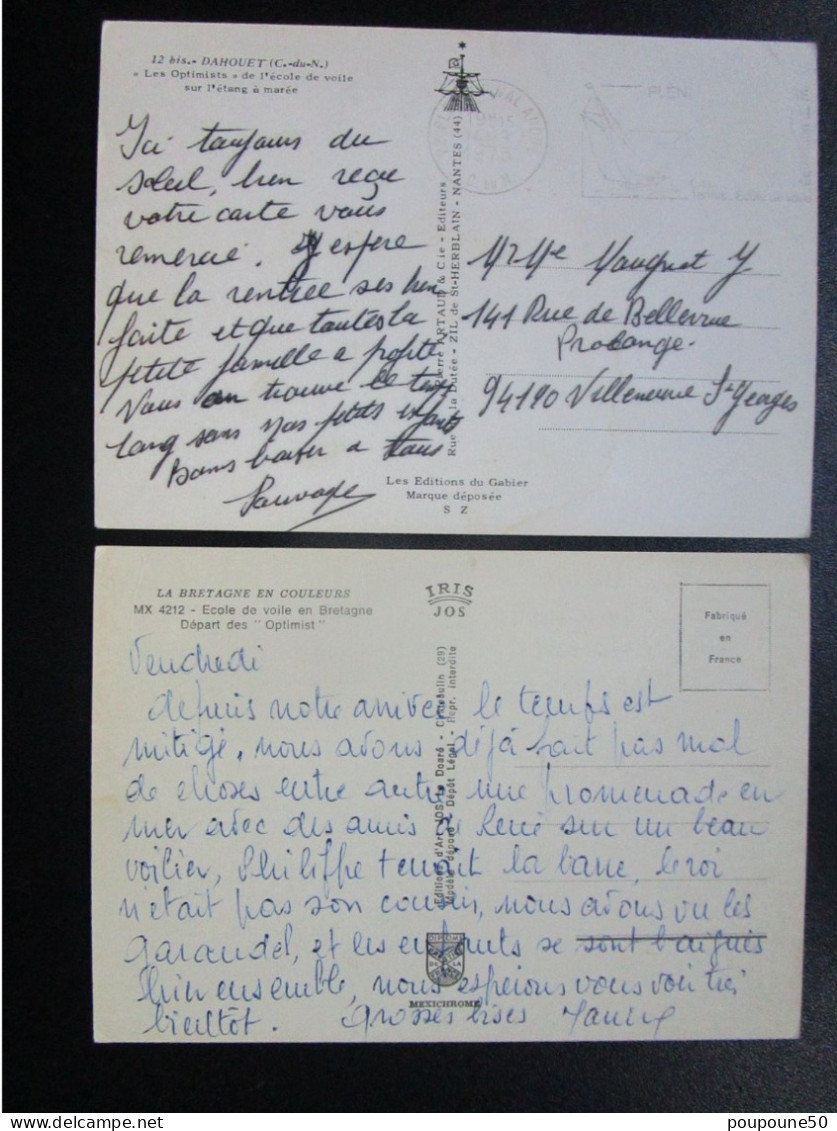 12 bis.- DAHOUET (C.-du-N.)
« Les Optimists » de l'école de voile
sur l'étang à marée
Ici toujours du
soleil, bien reçu
votre carte vous
remercie. J'espère
que la rentrée ses bien
faite et que toutes la
petite famille a profité
Nous on trouve le temps
long sans nos petits enfants
Bons baiser a tous
Sauvage
Pierre ARTAUD & Cie - Editeurs
Rue de la Dutée - ZIL de St-HERBLAIN - NANTES (44)
Les Editions du Gabier
Marque déposée
S Z
PLENE
Mr Mme Mauguet Y
141 Rue de Bellevue
Prolongé.
94190 Villeneuve St Georges
LA BRETAGNE EN COULEURS
MX 4212 - Ecole de voile en Bretagne
Départ des " Optimist "
IRIS
JOS
Fabriqué
en
France
Vendredi
depuis notre arrivée le temps est
mitigé, nous avons déjà fait pas mal
de choses entre autre une promenade en
mer avec des amis de René sur un beau
voilier, Philippe tenait la barre, le roi
n'était pas son cousin, nous avons vu les
Garandel, et les enfants se sont baignés
bien ensemble, nous espérions vous voir très
bientôt. Grosses bises
Editions d'Art JOS Le Doaré - Châteaulin (29)
Modèle déposé - Dépôt Légal - Repr. interdite
MEXICHROME
https://www.delcampe.net
poupoune50